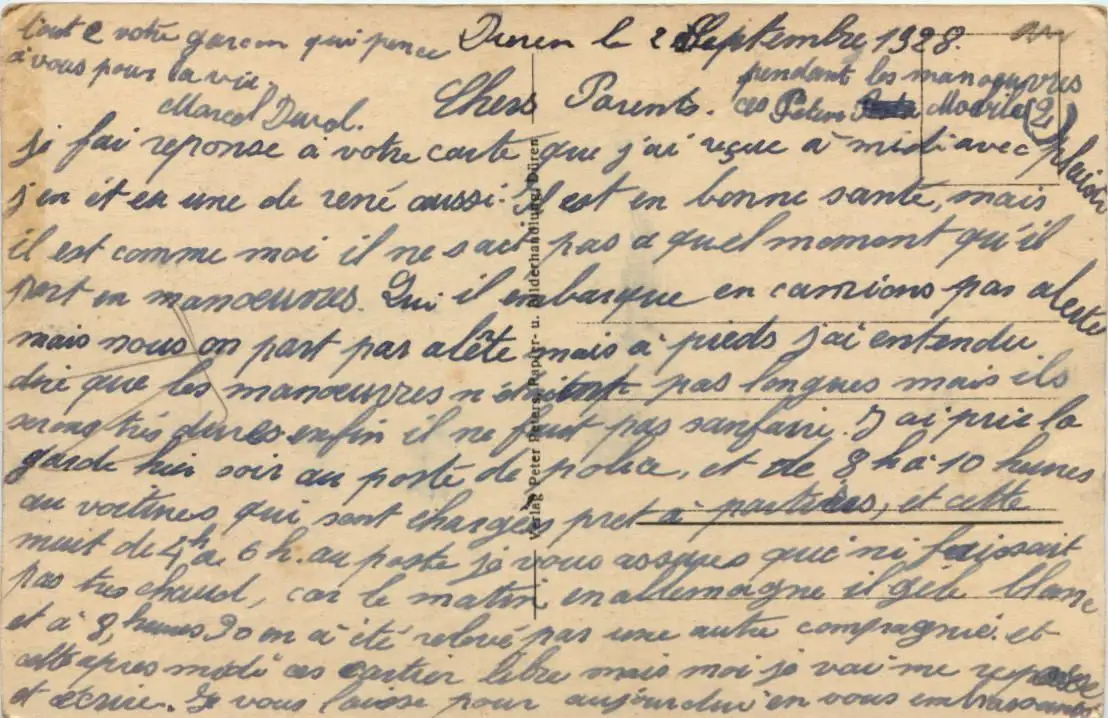 Düren le 2 Septembre 1928.
Chers Parents.
je fai reponse à votre carte que j'ai reçue à midi avec plaisir
j'en ét en une de rené aussi. il est en bonne santé, mais
il est comme moi il ne sait pas a quel moment qu'il
part en manœuvres. Qui il embarque en camions pas alerte
mais nous on part pas alète mais à pieds j'ai entendu
dire que les manœuvres n'étaient pas longues mais ils
serons très dures enfin il ne faut pas sanfaire. J'ai pris la
garde hier soir au poste de police, et de 8 h à 10 heures
au voitures qui sont chargées pret à parties, et cette
nuit de 4h à 6 h. au poste je vous assures que ni faissait
pas très chaud, car le matin en allemagne il gèle blanc
et à 8, heures 30 on à été relevé par une autre compagnie. et
cette apres midi ces cartier libre mais moi je vai me reposse
et écrire. Je vous laisse pour aujourdui en vous embrassant
tout 2 votre garcon qui pence
à vous pour la vie.
Marcel Duval.
pendant les manoeuvres
ces Peters
(2)
Verlag Peter Peters, Papier- u. Bilderhandlung, Düren